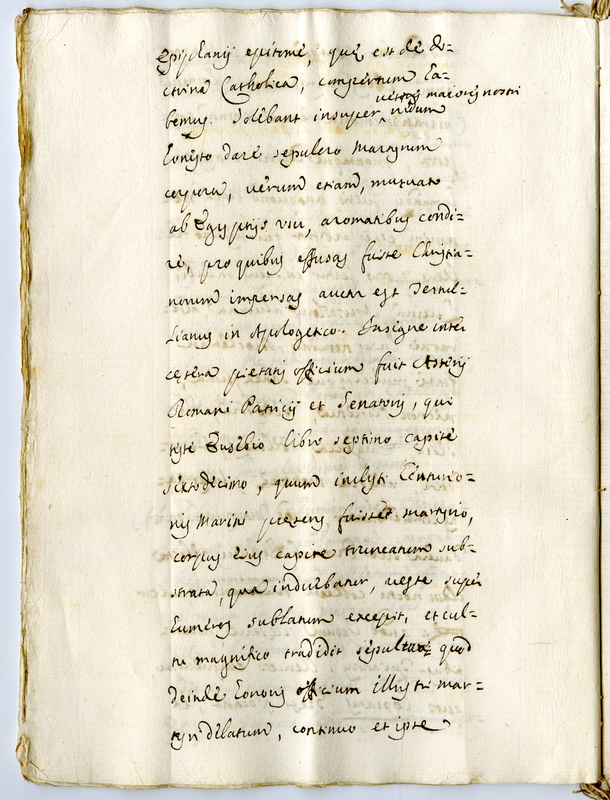 Epiphanij epitome, quę est de do-
ctrina Catholica, compertum ha-
bemus. Solebant insuper
veteres maiores nostri
nedum
honesto dare sepulcro Martyrum
corpora, verum etiam, mutuato
ab Egyptijs usu, aromatibus condi-
re, pro quibus effusas fuisse Christia-
norum impensas auctor est Tertul-
lianus in Apologetico. Insigne inter
cętera pietatis officium fuit Asterij
Romani Patricij et Senatoris, qui
teste Eusebio libro septimo capite
sextodecimo, quum inclyti Centurio-
nis Marini presens fuisset martyrio,
corpus eius capite truncatum sub-
strata, qua induebatur, veste super
humeros sublatum excepit, et cul-
tu magnifico tradidit sepulturę quod
deinde honoris officium illustri mar-
tyri delatum, continuo et ipse